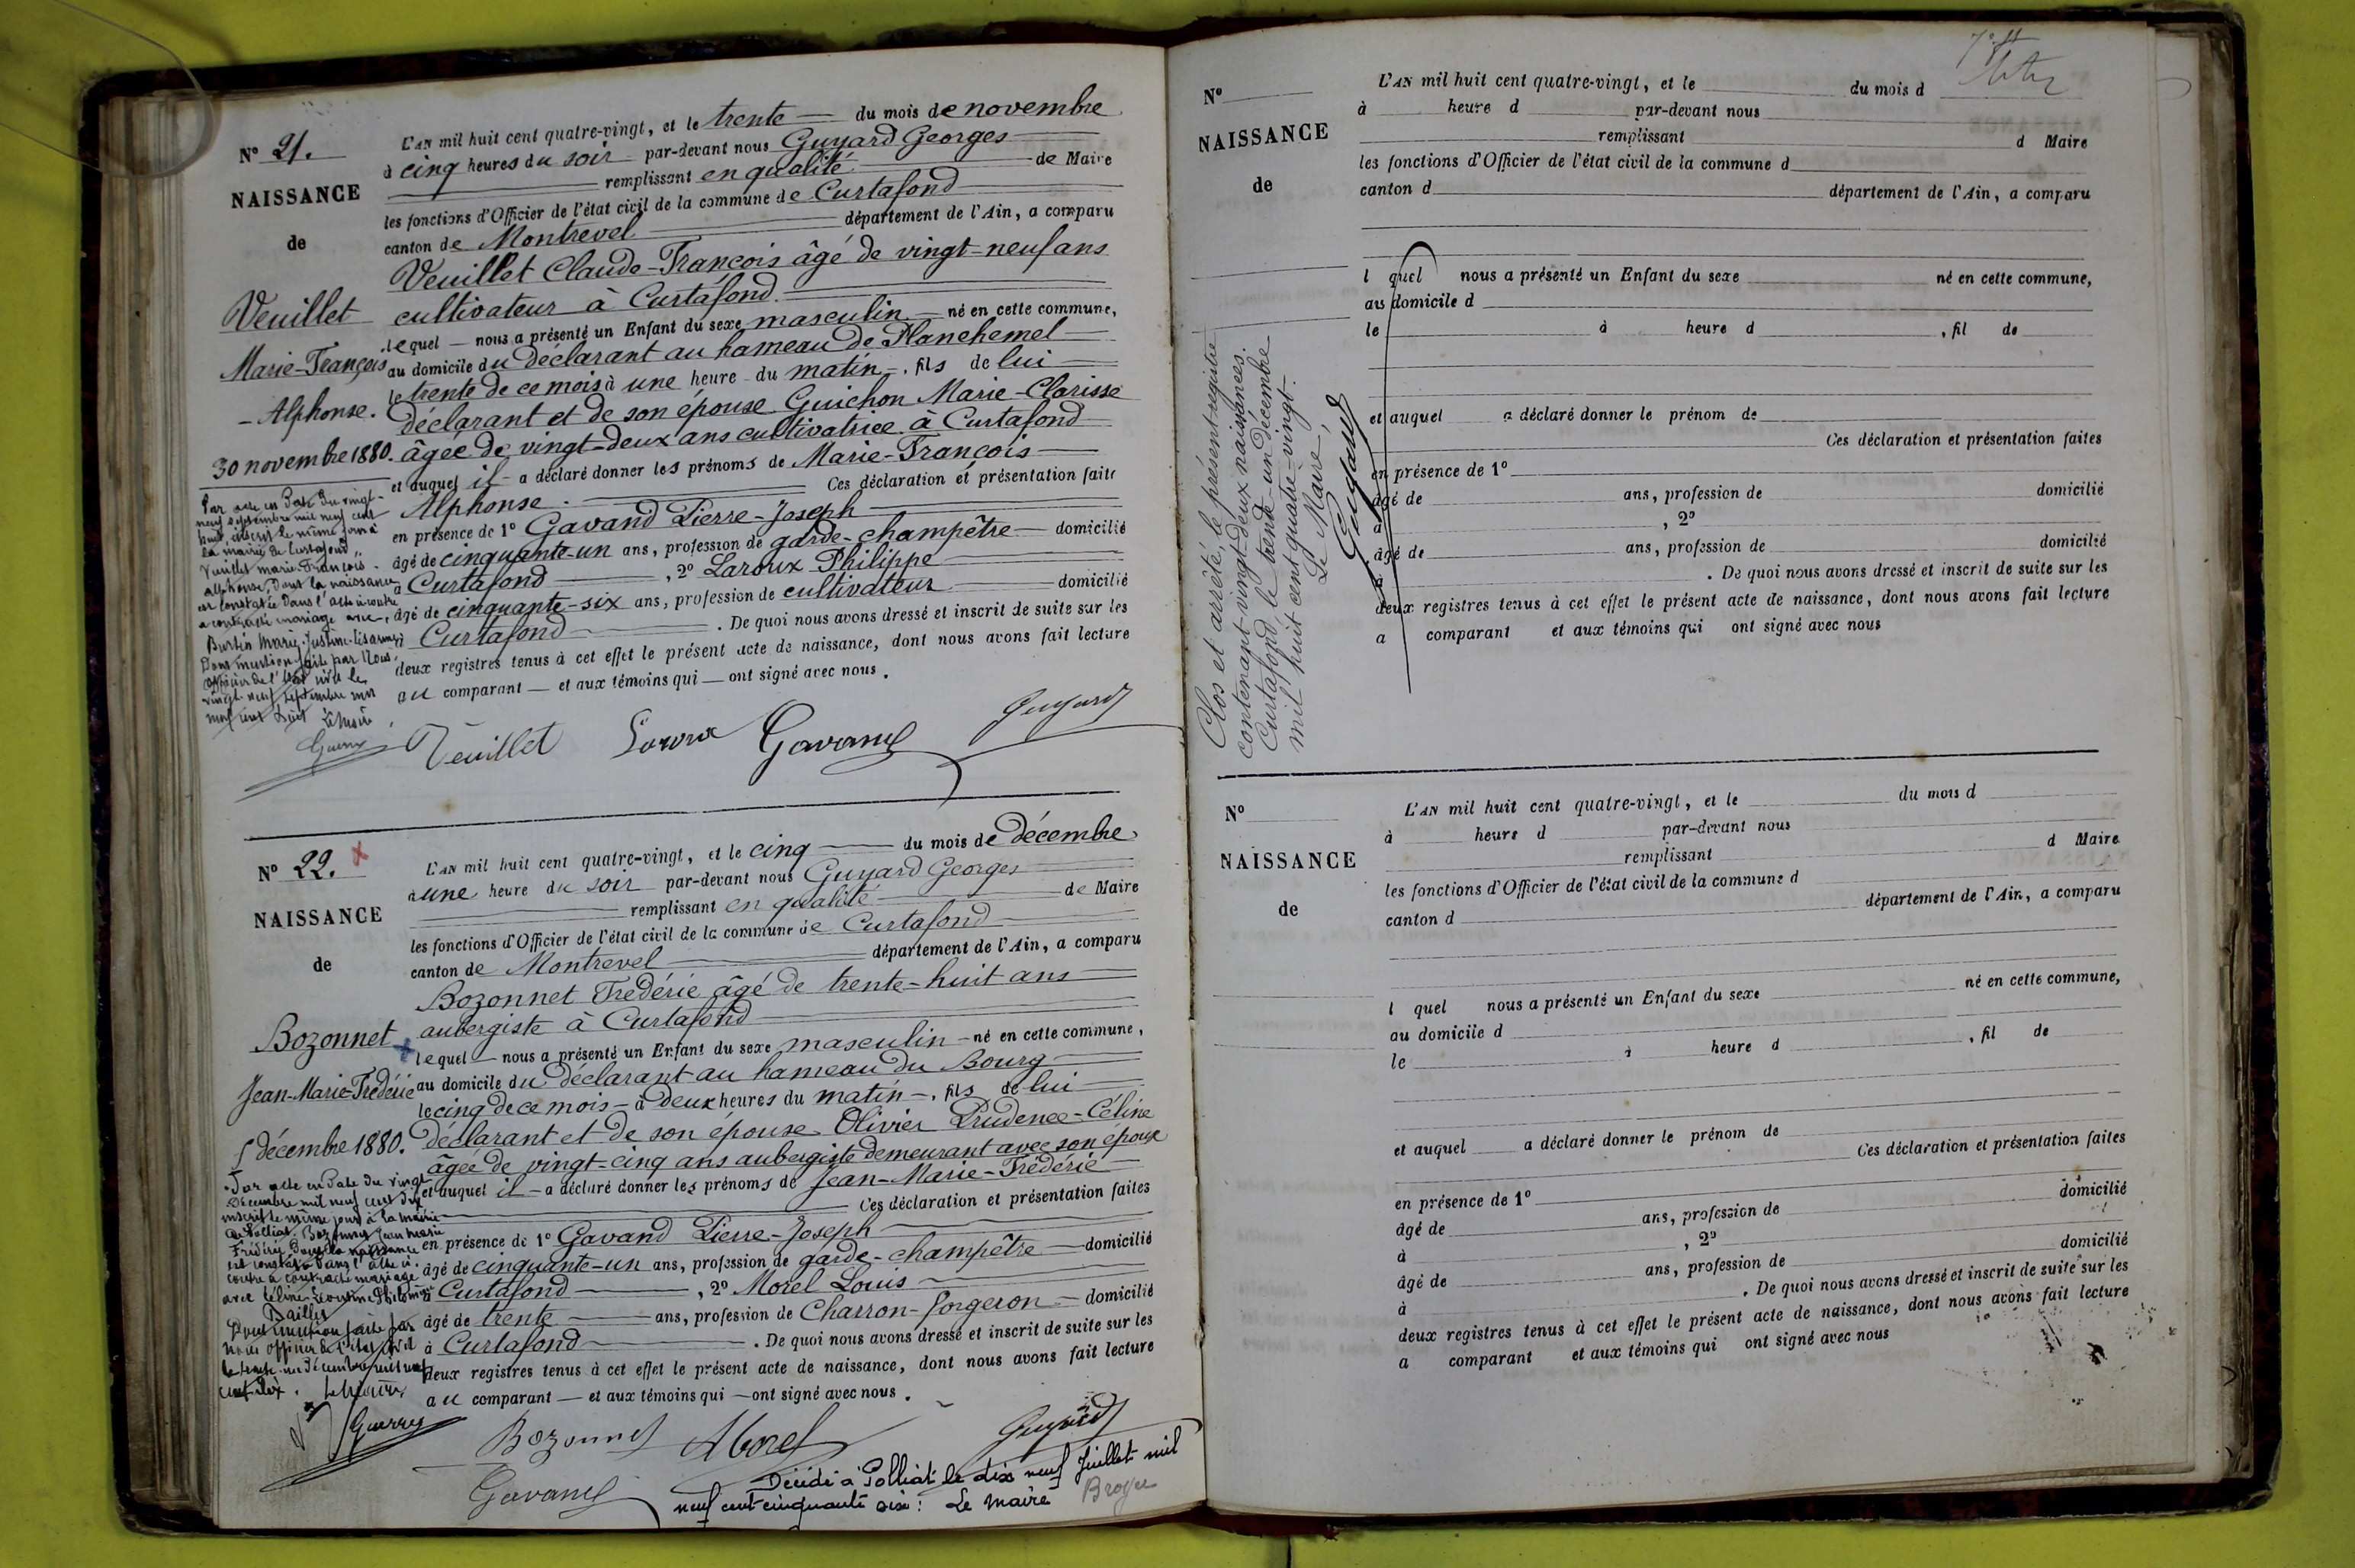 N° 21.
NAISSANCE
de
Veuillet
Marie-François
- Alphonse.
30 novembre 1880.
Par acte en Date du vingt-
neuf septembre mil neuf cent
huit, inscrit le même jour à
la mairie de Curtafond,
Veuillet Marie-François-
Alphonse, dont la naissance
est constatée dans l'acte ci-contre
a contracté mariage avec
Burtin Marie-Justine
Dont mention faite par Nous,
officier de l'état civil le
vingt-neuf septembre mil
neuf cent huit Le Maire
L'AN mil huit cent quatre-vingt, et le trente du mois de novembre
à cinq heures du soir par-devant nous Guyard Georges
remplissant en qualité de Maire
les fonctions d'Officier de l'état civil de la commune de Curtafond
canton de Montrevel département de l'Ain, a comparu
Veuillet Claude-François âgé de vingt-neuf ans
cultivateur à Curtafond.
lequel — nous a présenté un Enfant du sexe masculin né en cette commune,
au domicile du déclarant au hameau de Planchemel
le trente de ce mois à une heure du matin, fils de lui
déclarant et de son épouse Guichon Marie-Clarisse
âgée de vingt-deux ans cultivatrice à Curtafond
et auquel il a déclaré donner les prénoms de Marie-François-
Alphonse. Ces déclaration et présentation faites
en présence de 1° Gavand Pierre-Joseph
âgé de cinquante-un ans, profession de garde-champêtre domicilié
à Curtafond, 2° Laroux Philippe
âgé de cinquante-six ans, profession de cultivateur domicilié
à Curtafond. De quoi nous avons dressé et inscrit de suite sur les
deux registres tenus à cet effet le présent acte de naissance, dont nous avons fait lecture
au comparant — et aux témoins qui — ont signé avec nous.
Veuillet Laroux Gavand Guyard
N° 22. x
NAISSANCE
de
Bozonnet
Jean-Marie-Frédéric
5 décembre 1880.
Par acte en Date du vingt
Décembre mil neuf cent dix
inscrit le même jour à la mairie
de Polliat, Bozonnet Jean Marie
Frédéric dont la naissance
est constatée dans l'acte ci-
contre a contracté mariage
avec Céline
Dont mention faite par
nous officier de l'état civil
le trente un décembre mil neuf
cent dix. Le Maire
L'AN mil huit cent quatre-vingt, et le cinq du mois de décembre
à une heure du soir par-devant nous Guyard Georges
remplissant en qualité de Maire
les fonctions d'Officier de l'état civil de la commune de Curtafond
canton de Montrevel département de l'Ain, a comparu
Bozonnet Frédéric âgé de trente-huit ans
aubergiste à Curtafond
lequel — nous a présenté un Enfant du sexe masculin né en cette commune,
au domicile du déclarant au hameau du Bourg
le cinq de ce mois à deux heures du matin, fils de lui
déclarant et de son épouse Olivier Prudence-Céline
âgée de vingt-cinq ans aubergiste demeurant avec son époux
et auquel il a déclaré donner les prénoms de Jean-Marie-Frédéric
Ces déclaration et présentation faites
en présence de 1° Gavand Pierre-Joseph
âgé de cinquante-un ans, profession de garde-champêtre domicilié
à Curtafond, 2° Morel Louis
âgé de trente ans, profession de Charron-forgeron domicilié
à Curtafond. De quoi nous avons dressé et inscrit de suite sur les
deux registres tenus à cet effet le présent acte de naissance, dont nous avons fait lecture
au comparant — et aux témoins qui — ont signé avec nous.
Bozonnet Morel Guyard
Gavand
Décédé à Polliat le dix neuf Juillet mil
neuf cent cinquante six : Le Maire
N°
NAISSANCE
de
Clos et arrêté, le présent registre
contenant vingt-deux naissances.
Curtafond, le trente-un décembre
mil huit cent quatre-vingt.
Le Maire,
Guyard
L'AN mil huit cent quatre-vingt, et le du mois d
à heure d par-devant nous
remplissant d Maire
les fonctions d'Officier de l'état civil de la commune d
canton d département de l'Ain, a comparu
l quel nous a présenté un Enfant du sexe né en cette commune,
au domicile d
le à heure d , fil de
et auquel a déclaré donner le prénom de
Ces déclaration et présentation faites
en présence de 1°
âgé de ans, profession de domicilié
à , 2°
âgé de ans, profession de domicilié
à . De quoi nous avons dressé et inscrit de suite sur les
deux registres tenus à cet effet le présent acte de naissance, dont nous avons fait lecture
a comparant et aux témoins qui ont signé avec nous
N°
NAISSANCE
de
L'AN mil huit cent quatre-vingt, et le du mois d
à heure d par-devant nous
remplissant d Maire
les fonctions d'Officier de l'état civil de la commune d
canton d département de l'Ain, a comparu
l quel nous a présenté un Enfant du sexe né en cette commune,
au domicile d
le à heure d , fil de
et auquel a déclaré donner le prénom de
Ces déclaration et présentation faites
en présence de 1°
âgé de ans, profession de domicilié
à , 2°
âgé de ans, profession de domicilié
à . De quoi nous avons dressé et inscrit de suite sur les
deux registres tenus à cet effet le présent acte de naissance, dont nous avons fait lecture
a comparant et aux témoins qui ont signé avec nous